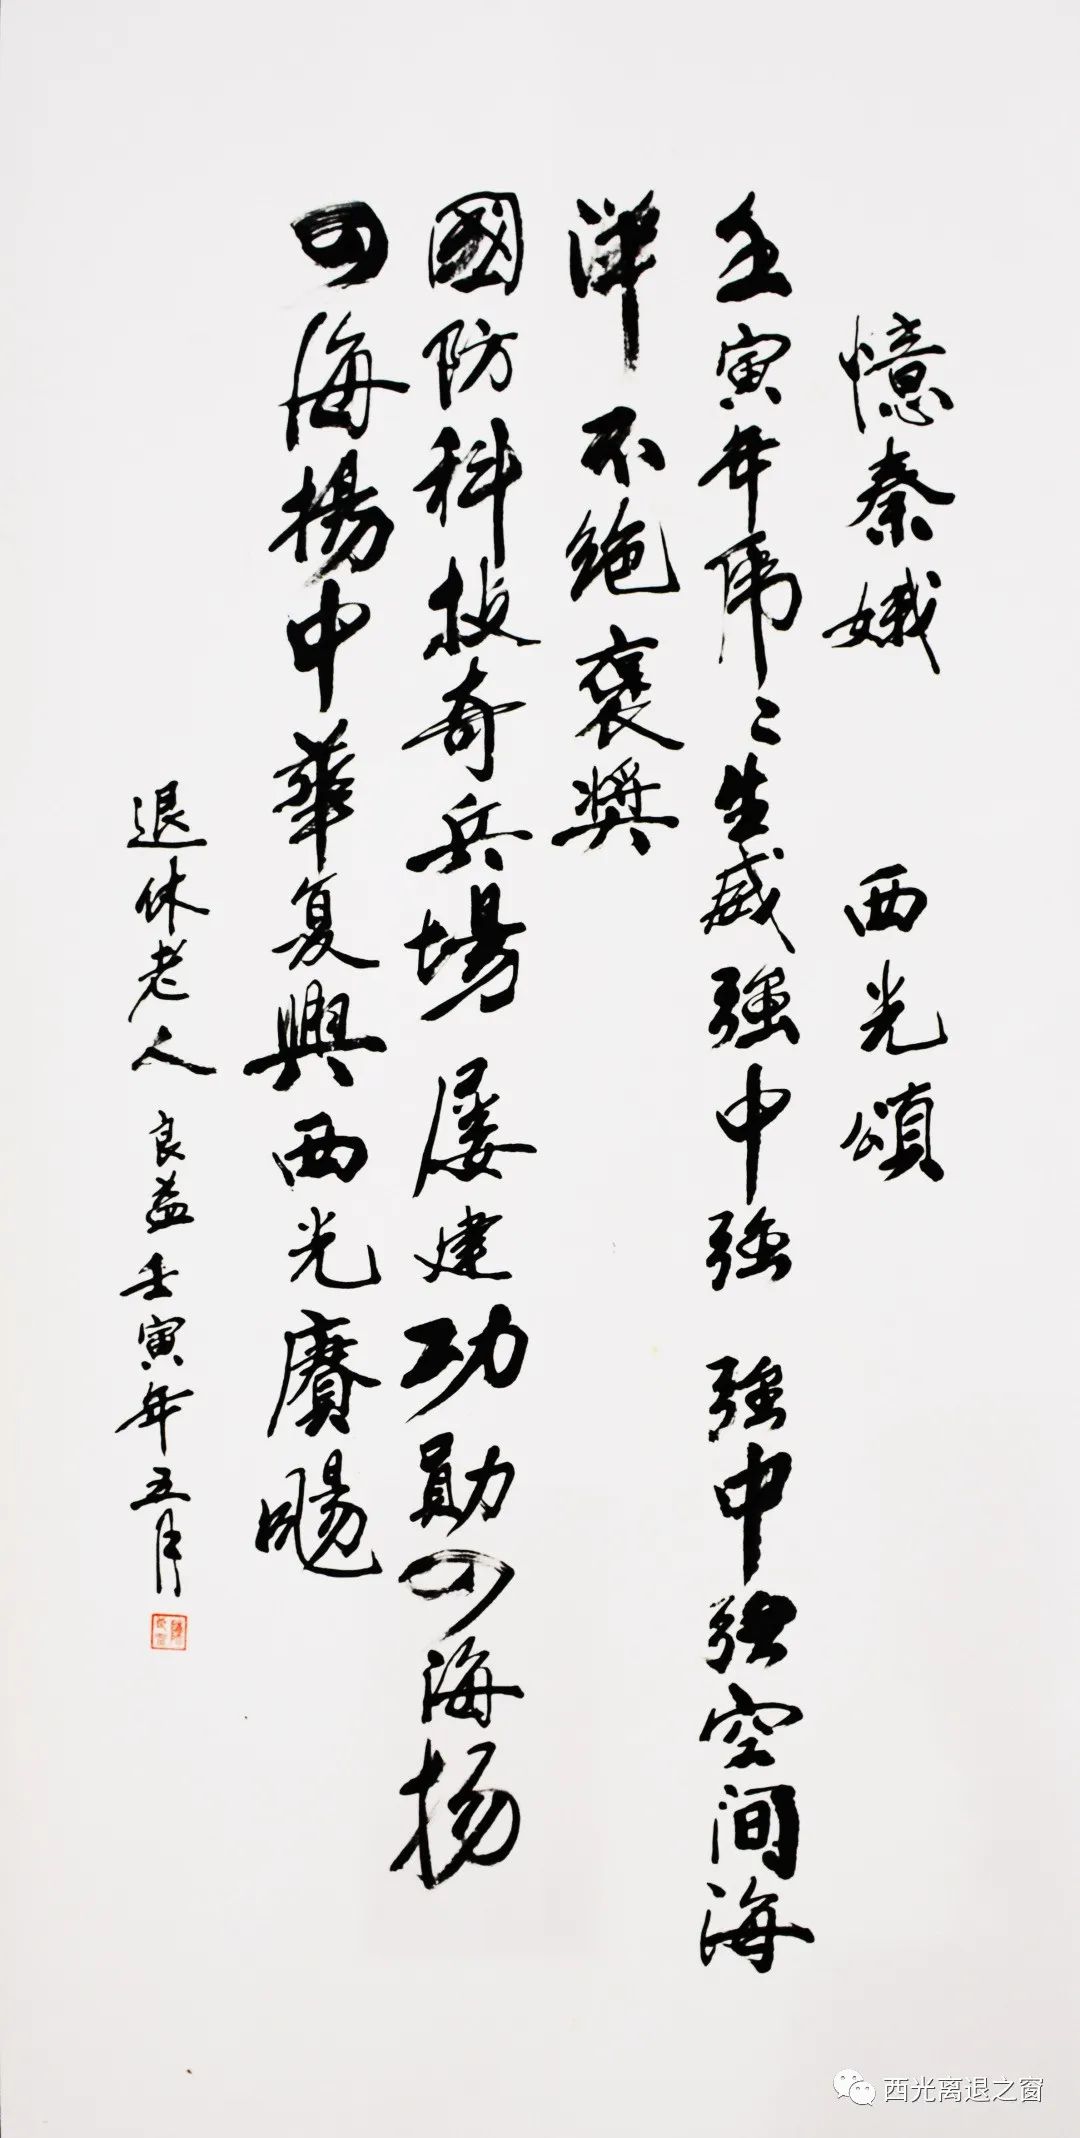 憶秦娥 西光頌
壬寅年虎〻生威强中强 强中强空间海
洋 不绝褒奖
國防科技奇兵場 屡建功勋四海扬
四海揚中華复興西光賡颺
退休老人良益壬寅年五月
西光离退之窗